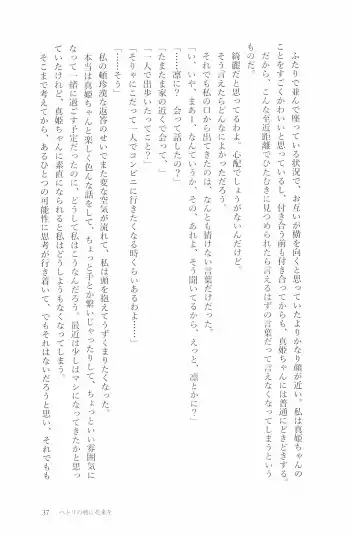 ふたりで並んで座っている状況で、お互いが横を向くと思っていたよりかなり顔が近い。私は真姫ちゃんの
ことをすごくかわいいと思っているし、付き合う前も付き合ってからも、真姫ちゃんには普通にどきどきする。
だから、こんな至近距離でひたむきに見つめられたら言えるはずの言葉だって言えなくなってしまうという
ものだ。
綺麗だと思ってるわよ。心配でしょうがないんだけど。
そう言えたらどんなによかっただろう。
それでも私の口から出てきたのは、なんとも情けない言葉だけだった。
「い、いや、まあー、なんていうか、その、あれよ、そう聞いてるから、えっと、凛とかに？」
「……凛に？　会って話したの？」
「たまたま家の近くで会って、」
「一人で出歩いたってこと？」
「そりゃにこだって一人でコンビニに行きたくなる時くらいあるわよ……」
「……そう」
私の頓珍漢な返答のせいでまた変な空気が流れて、私は頭を抱えてうずくまりたくなった。
本当は真姫ちゃんと楽しく色んな話をして、ちょっと手とか繋いじゃったりして、ちょっといい雰囲気に
なって一緒に過ごす予定だったのに、どうして私はこうなんだろう。最近は少しはマシになってきたかと思っ
ていたけれど、真姫ちゃんに素直になられると私はどうしようもなくなってしまう。
そこまで考えてから、あるひとつの可能性に思考が行き着いて、でもそれはないだろうと思い、それでも
37